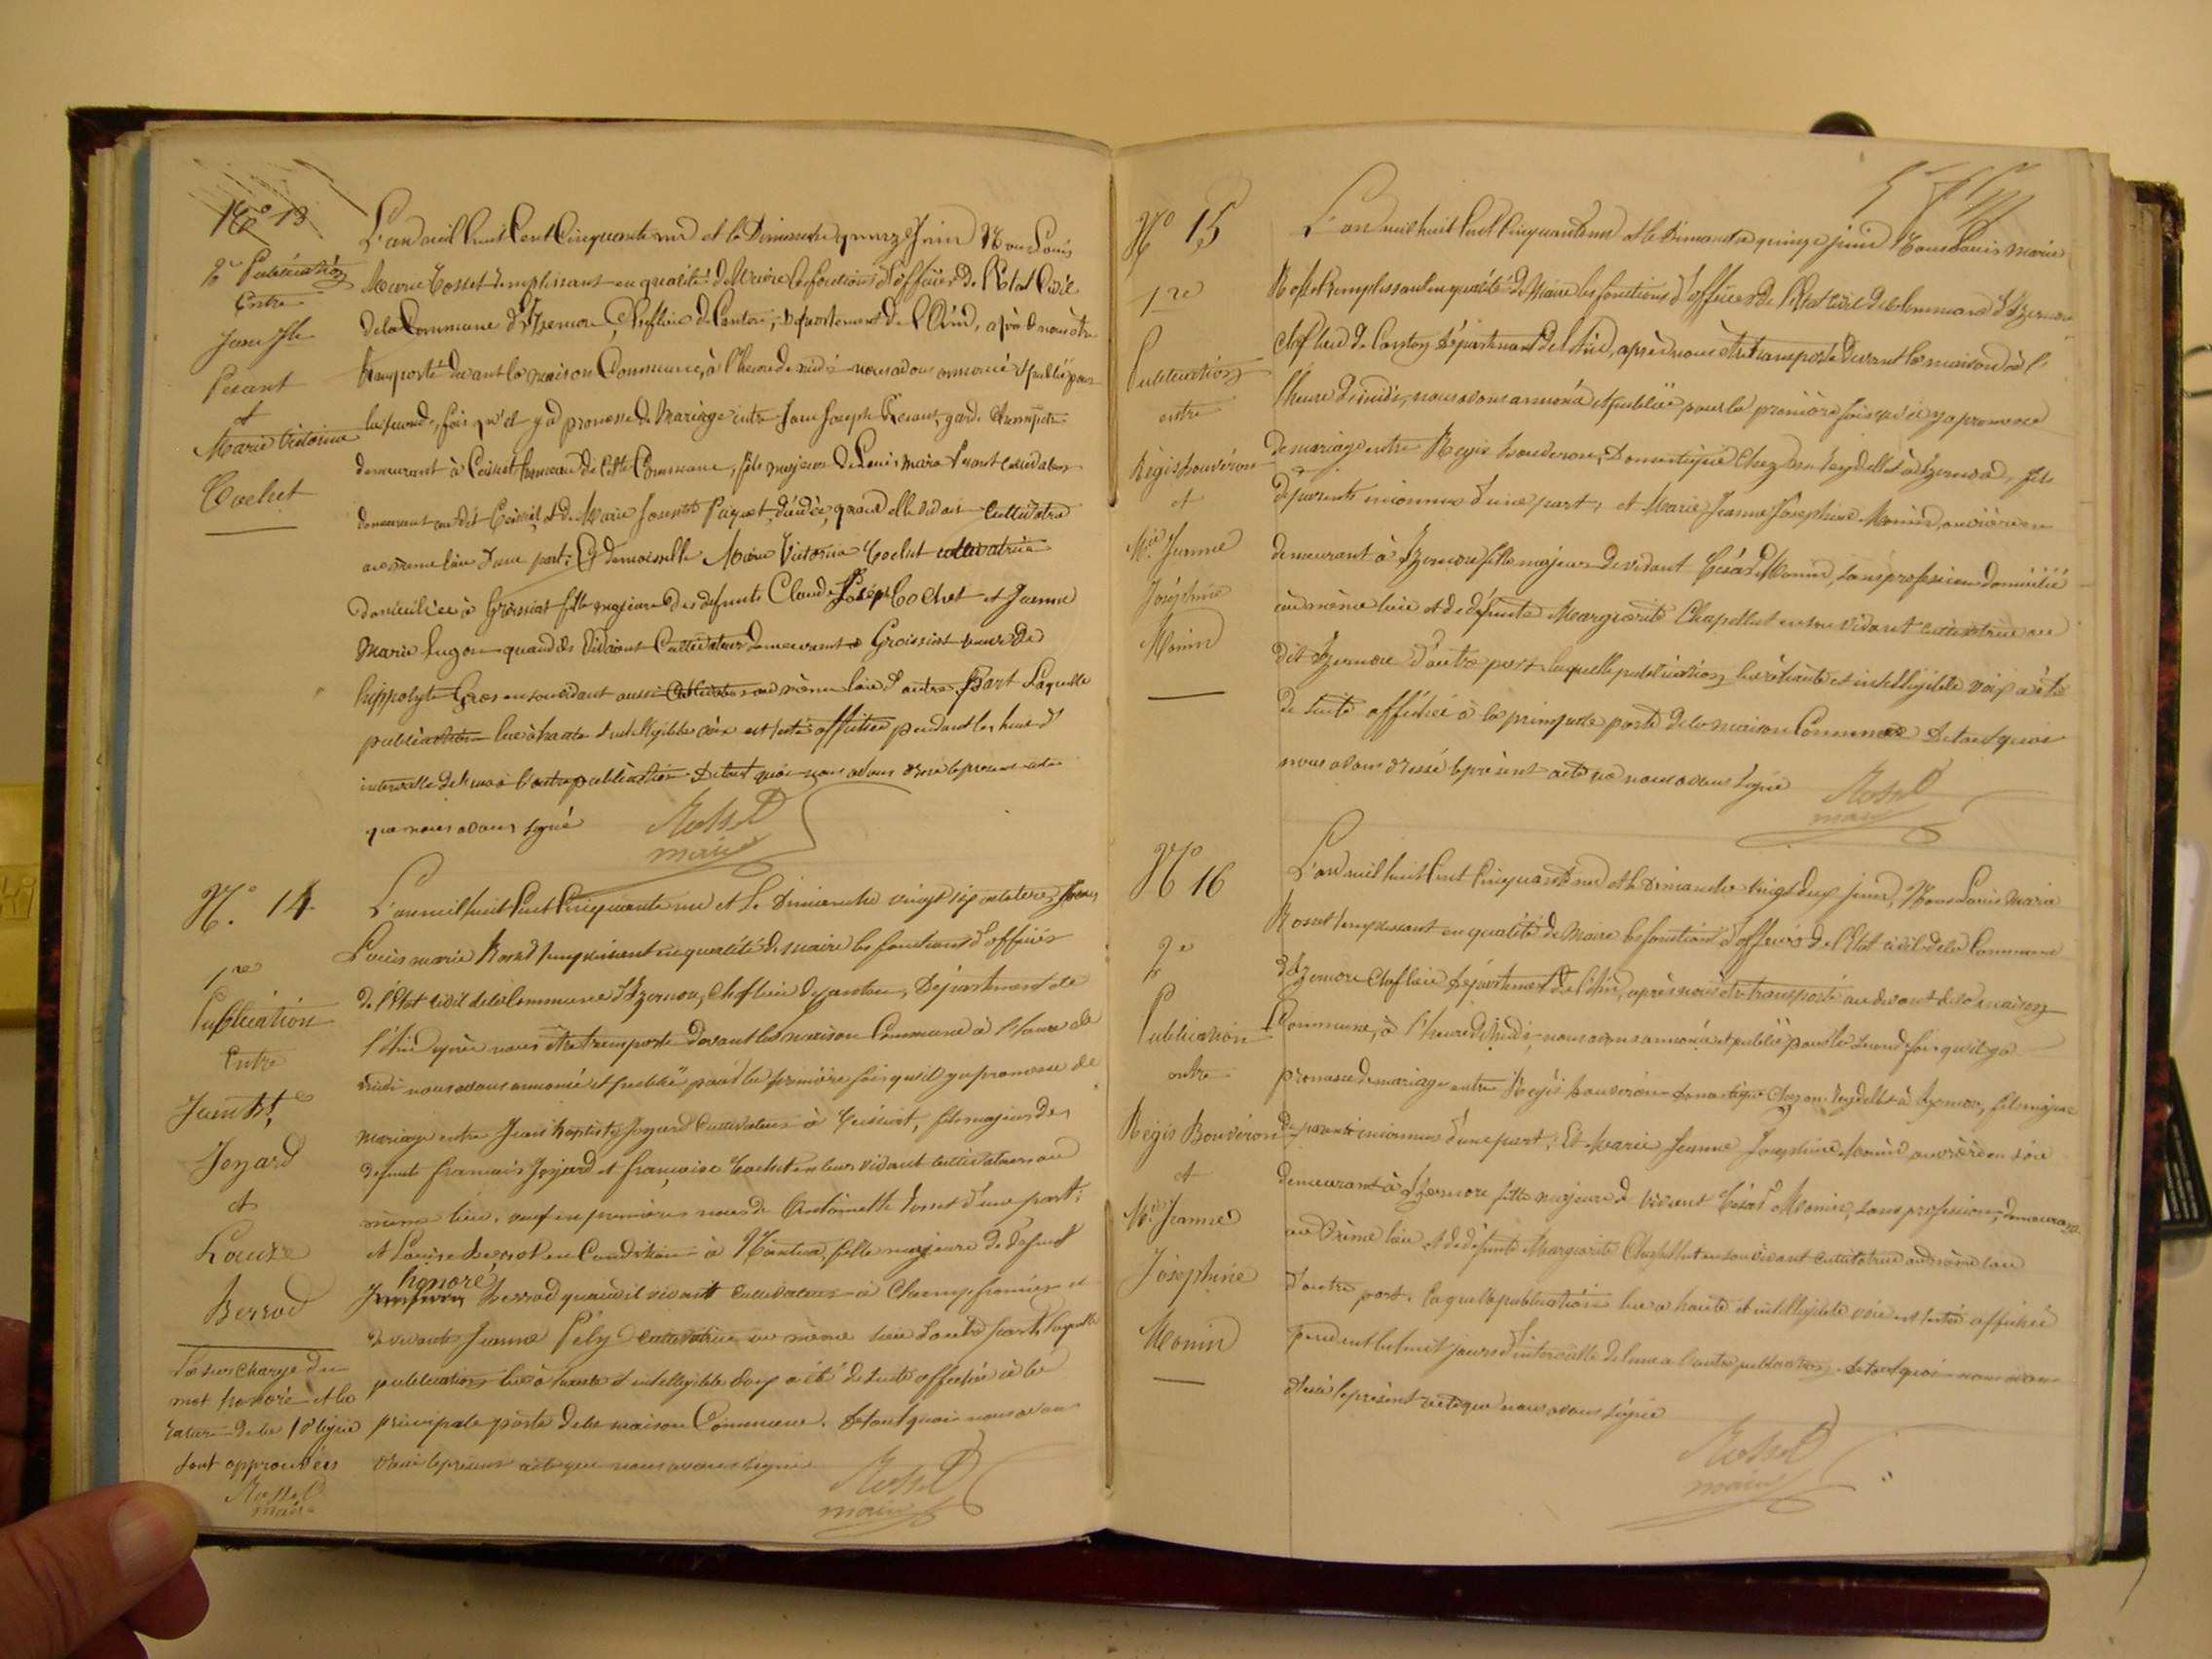 No 13
2e Publication
Entre
Jean Jh
Pesant
et
Marie Victorine
Cochet
L'an mil huit Cent Cinquante un et le Dimanche quinze Juin Nous Louis
Marie Rosset remplissant en qualité de Maire les fonctions d'officier de l'Etat Civil
de la Commune d'Izernore, Chef lieu de Canton, Département de l'Ain, après nous être
transporté devant la maison Commune, à l'heure de midi nous avons annoncé et publié pour
la seconde fois qu'il y a promesse de Mariage entre Jean Joseph Pesant, garde Champêtre
demeurant à Ceissiat hameau de Cette Commune, fils majeur de Louis Marie Pesant Cultivateur
demeurant au dit Ceissiat et de Marie Josephte Paquet, décédée, quand elle vivait Cultivatrice
au même lieu d'une part; Et demoiselle Marie Victorine Cochet cultivatrice
domiciliée à Groissiat fille majeure des defunts Claude Joseph Cochet et Jeanne
Marie Lugon quand ils vivaient Cultivateurs demeurant à Groissiat veuve de
hippolyte Gros en son vivant aussi Cultivateur au même lieu d'autre Part Laquelle
publication lue à haute et intelligible voix est restée affichée pendant les huit jours d'
intervalle de l'une à l'autre publication De tout quoi nous avons dressé le présent acte
que nous avons signé
Rosset
maire
No. 14
1re
Publication
Entre
Jean Bte
Joyard
et
Louise
Berrod
La surcharge du
mot honoré et la
rature de la 10e ligne
sont approuvées
Rosset
maire
L'an mil huit Cent Cinquante un et le Dimanche vingt six octobre, Nous
Louis marie Rosset remplissant en qualité de maire les fonctions d'officier
de l'Etat civil de la Commune d'Izernore, Chef lieu de Canton, Département de
l'Ain après nous être transporté devant la maison Commune à l'heure de
midi nous avons annoncé et publié pour la première fois qu'il y a promesse de
mariage entre Jean baptiste Joyard Cultivateur à Ceissiat, fils majeur des
defunts francois Joyard et françoise Cochet en leur vivant cultivateurs au
même lieu, veuf en premières noces de Antoinette d'une part;
et Louise Berrod en Condition à Nantua, fille majeure de defunt
honoré Berrod quand il vivait Cultivateur à Champfromier et
de vivante Jeanne Pely Cultivatrice au même lieu d'autre part, laquelle
publication lue à haute et intelligible voix a été de suite affichée à la
principale porte de la maison Commune. De tout quoi nous avons
dressé le present acte que nous avons signé
Rosset
maire
No 15
1re
Publication
entre
Régis Bouvéron
et
Mie Jeanne
Joséphine
Monin
L'an mil huit Cent Cinquante un et le Dimanche quinze juin Nous Louis marie
Rosset Remplissant en qualité de Maire les fonctions d'officier de l'Etat civil de la Commune d'Izernore
Chef lieu de Canton Département de l'Ain, après nous être transporté devant la maison à l'
l'heure de midi, nous avons annoncé et publié pour la première fois qu'il y a promesse
de mariage entre Regis Bouveron, Domestique Chez Reydellet à Izernore, fils
de parents inconnus d'une part, et Marie Jeanne Josephine Monin, ouvrière en
demeurant à Izernore fille majeure de vivant César Monin, sans profession domicilié
au même lieu et de défunte Marguerite Chapellut en son vivant cultivatrice au
dit Izernore d'autre part laquelle publication lue à haute et intelligible voix a été
de suite affichée à la principale porte de la maison Commune De tout quoi
nous avons dressé le présent acte que nous avons signé
Rosset
maire
No 16
2e
Publication
entre
Régis Bouvéron
et
Mie Jeanne
Joséphine
Monin
L'an mil huit Cent Cinquante un et le Dimanche vingt deux juin, Nous Louis Marie
Rosset remplissant en qualité de Maire les fonctions d'officier de l'Etat civil de la Commune
d'Izernore Chef lieu Département de l'Ain, après nous être transporté au devant de la maison
Commune, à l'heure de Midi, nous avons annoncé et publié pour la seconde fois qu'il y a
promesse de mariage entre Régis Bouvéron domestique Chez Reydellet à Izernore, fils majeur
de parents inconnus d'une part; Et Marie Jeanne Josephine Monin ouvrière en soie
demeurant à Izernore fille majeure de vivant César Monin, sans profession, demeurant
au même lieu et de défunte Marguerite Chapellut en son vivant cultivatrice au même lieu
d'autre part. Laquelle publication lue à haute et intelligible voix est restée affichée
pendant les huit jours d'intervalle de l'une à l'autre publication. De tout quoi nous avons
dressé le présent acte que nous avons signé
Rosset
maire